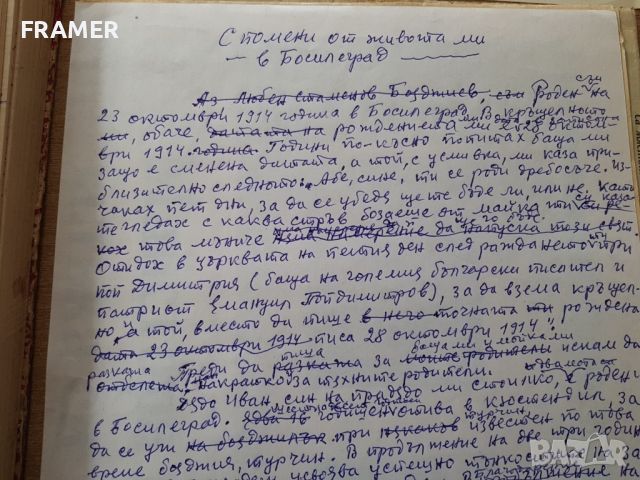 FRAMER
Спомени от живота ми
в Босилеград
съм
Аз Любен Стаменов Бояджиев, съм Роден на
23 октомври 1914 година в Босилеград. В кръщелното
ми, обаче, датата на рождението ми е 28 октом-
ври 1914 година. Години по-късно попитах баща ми
защо е сменена датата, а той, с усмивка, ми каза при-
близително следното: Абе, сине, ти се роди дребосъче. Из-
чаках пет дни, за да се убедя ще те бъде ли, или не. Като
гледах с каква стръв бозаеше от майка ти си каза
това момиче да напуска този свят
Отидох в църквата на петия ден след раждането ти при
поп Димитрия (баща на големия български писател и
патриот Емануил Попдимитров), за да взема кръщел-
но, а той, вместо да пише в него точната ти рождена
дата 23 октомври 1914 писа 28 октомври 1914".
баща ми и майка ми
Преди да разкажа за моите родители искам да
разкажа накратко за техните родители.
Дядо Иван, син на прадядо ми Стоилко, е роден
в Босилеград. годишен отива в Кюстендил, за
да се учи на бояджилък при известен по това
време бояджия, турчин. В продължение на две-три години
усвоява успешно тънкостите на